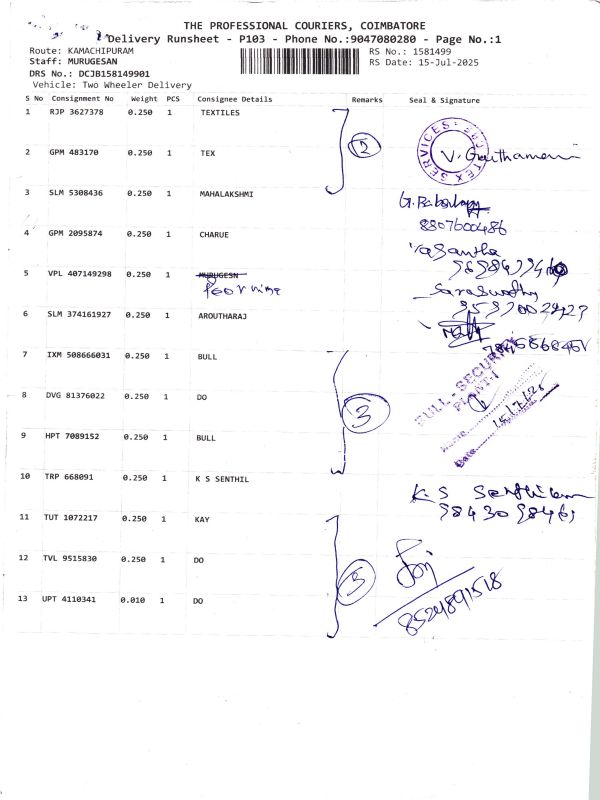 THE PROFESSIONAL COURIERS, COIMBATORE
Delivery Runsheet - P103 - Phone No.:9047080280 - Page No.:1
Route: KAMACHIPURAM
RS No.: 1581499
Staff: MURUGESAN
RS Date: 15-Jul-2025
DRS No.: DCJB158149901
Vehicle: Two Wheeler Delivery
S No Consignment No Weight PCS Consignee Details Remarks Seal & Signature
1 RJP 3627378 0.250 1 TEXTILES
2 GPM 483170 0.250 1 TEX
2
SERVICES
TEX
3 SLM 5308436 0.250 1 MAHALAKSHMI
8807600486
4 GPM 2095874 0.250 1 CHARUE
Vasantha
5 VPL 407149298 0.250 1 MURUGESN
6 SLM 374161927 0.250 1 AROUTHARAJ
7 IXM 508666031 0.250 1 BULL
8 DVG 81376022 0.250 1 DO
3
BULL - SECURITY
PLANT-1
Name
Date
9 HPT 7089152 0.250 1 BULL
10 TRP 668091 0.250 1 K S SENTHIL
K. S
98430 98461
11 TUT 1072217 0.250 1 KAY
12 TVL 9515830 0.250 1 DO
13 UPT 4110341 0.010 1 DO
8524891518